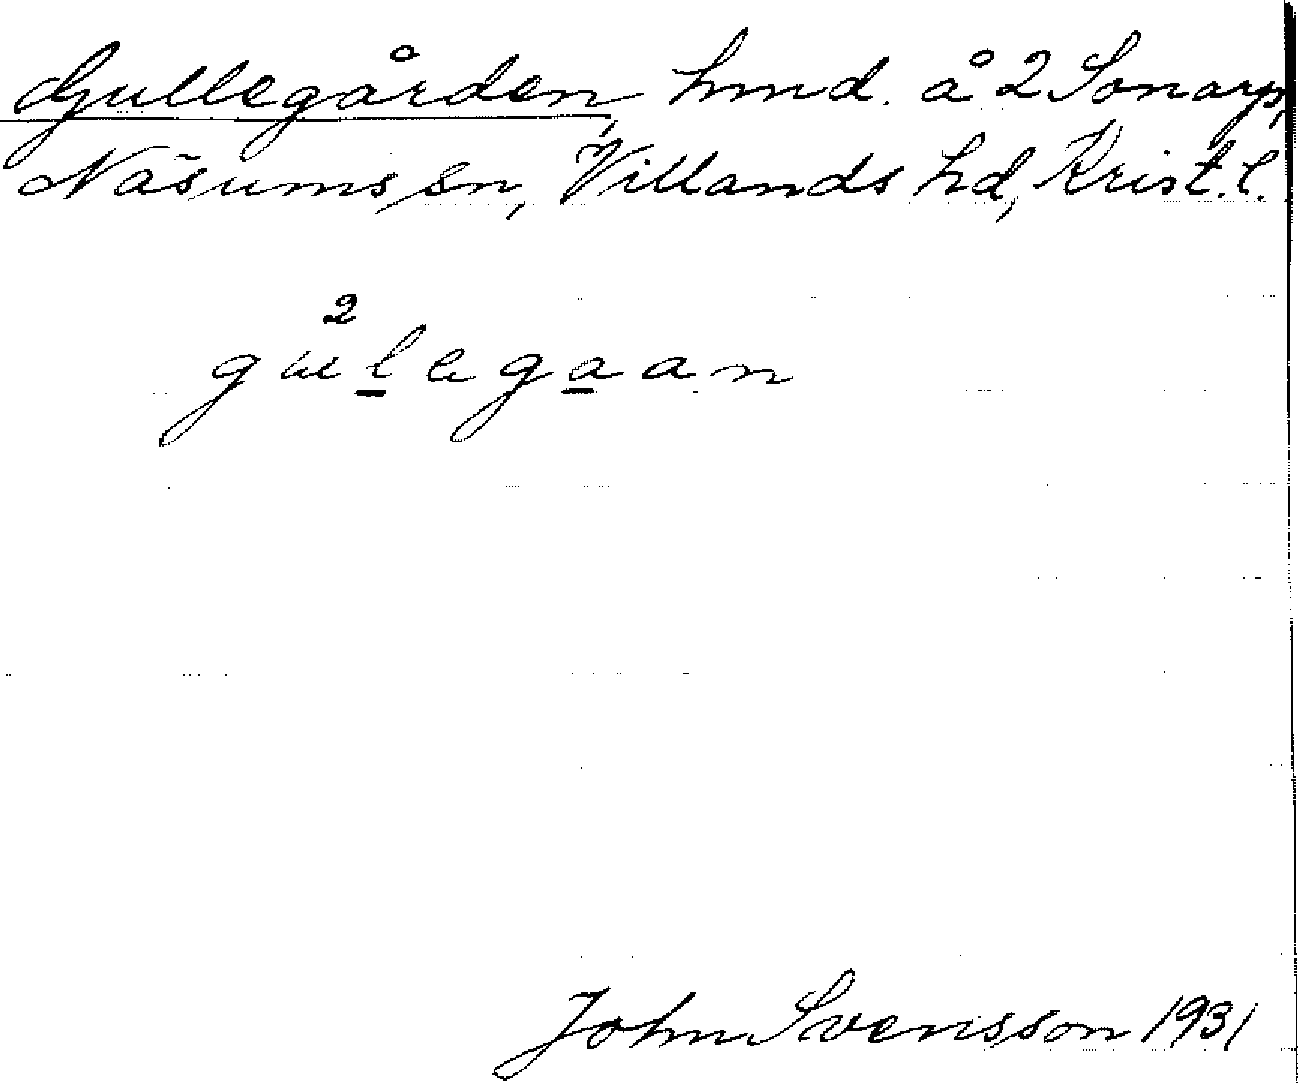 Gullegården, hmd. å 2 Sonarp,
Näsums sn, Villands hd, Krist. l.
2
gulegaan
John Svensson 1931